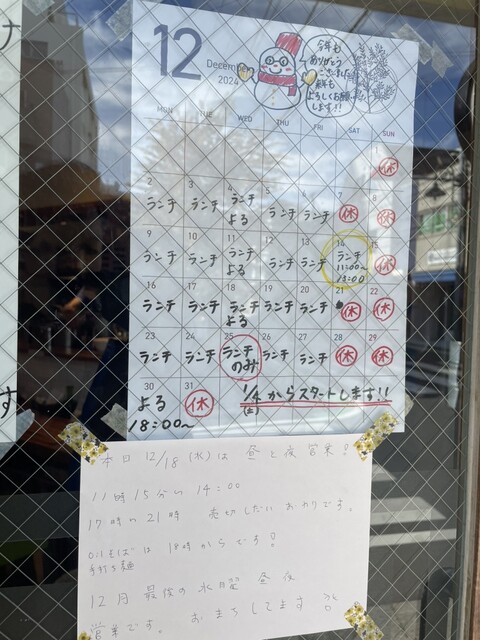 12
December
2024
今年も
ありがとう
ございました
来年も
よろしくお願い
します!!
MON TUE WED THU FRI SAT SUN
休
2 3 4 5 6 7 8
ランチ ランチ ランチ ランチ ランチ 休 休
よる
9 10 11 12 13 14 15
ランチ ランチ ランチ ランチ ランチ ランチ 休
よる 11:00~
15:00
16 17 18 19 20 21 22
ランチ ランチ ランチ ランチ ランチ 休 休
よる
23 24 25 26 27 28 29
ランチ ランチ ランチ ランチ ランチ 休 休
のみ
30 31
よる 休 1/4からスタートします!!
18:00~ (土)
本日 12/18 (水)は 昼と夜営業!
11時15分〜 14:00
17時〜21時 売切しだい おわりです。
は 18時からです!
手打ち麺
12月 最後の水曜 昼夜
営業です。 おまちしてます